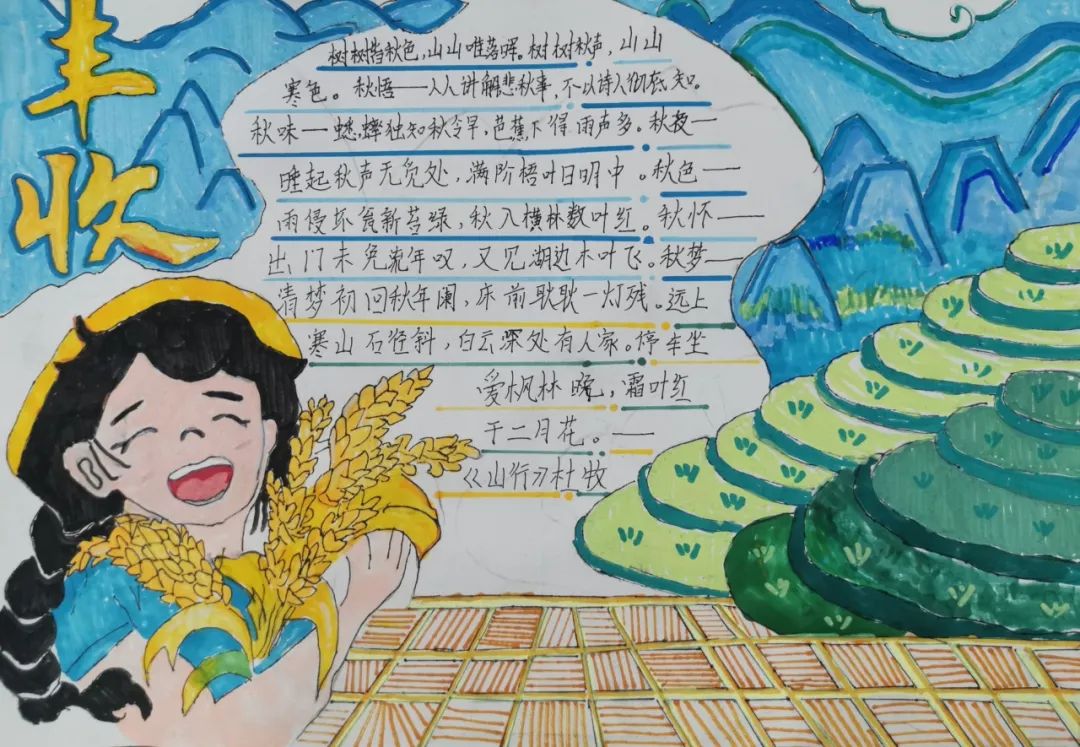 丰收
树树皆秋色，山山唯落晖。树树秋声，山山
寒色。秋悟——人人讲解悲秋事，不以诗人彻底知。
秋味—蟋蟀独知秋令早，芭蕉下得雨声多。秋夜—
睡起秋声无觅处，满阶梧叶日明中。秋色——
雨侵坏瓮新苔绿，秋入横林数叶红。秋怀——
出门未免流年叹，又见湖边木叶飞。秋梦—
清梦初回秋年阑，床前耿耿一灯残。远上
寒山石径斜，白云深处有人家。停车坐
爱枫林晚，霜叶红
于二月花。——
《山行》杜牧